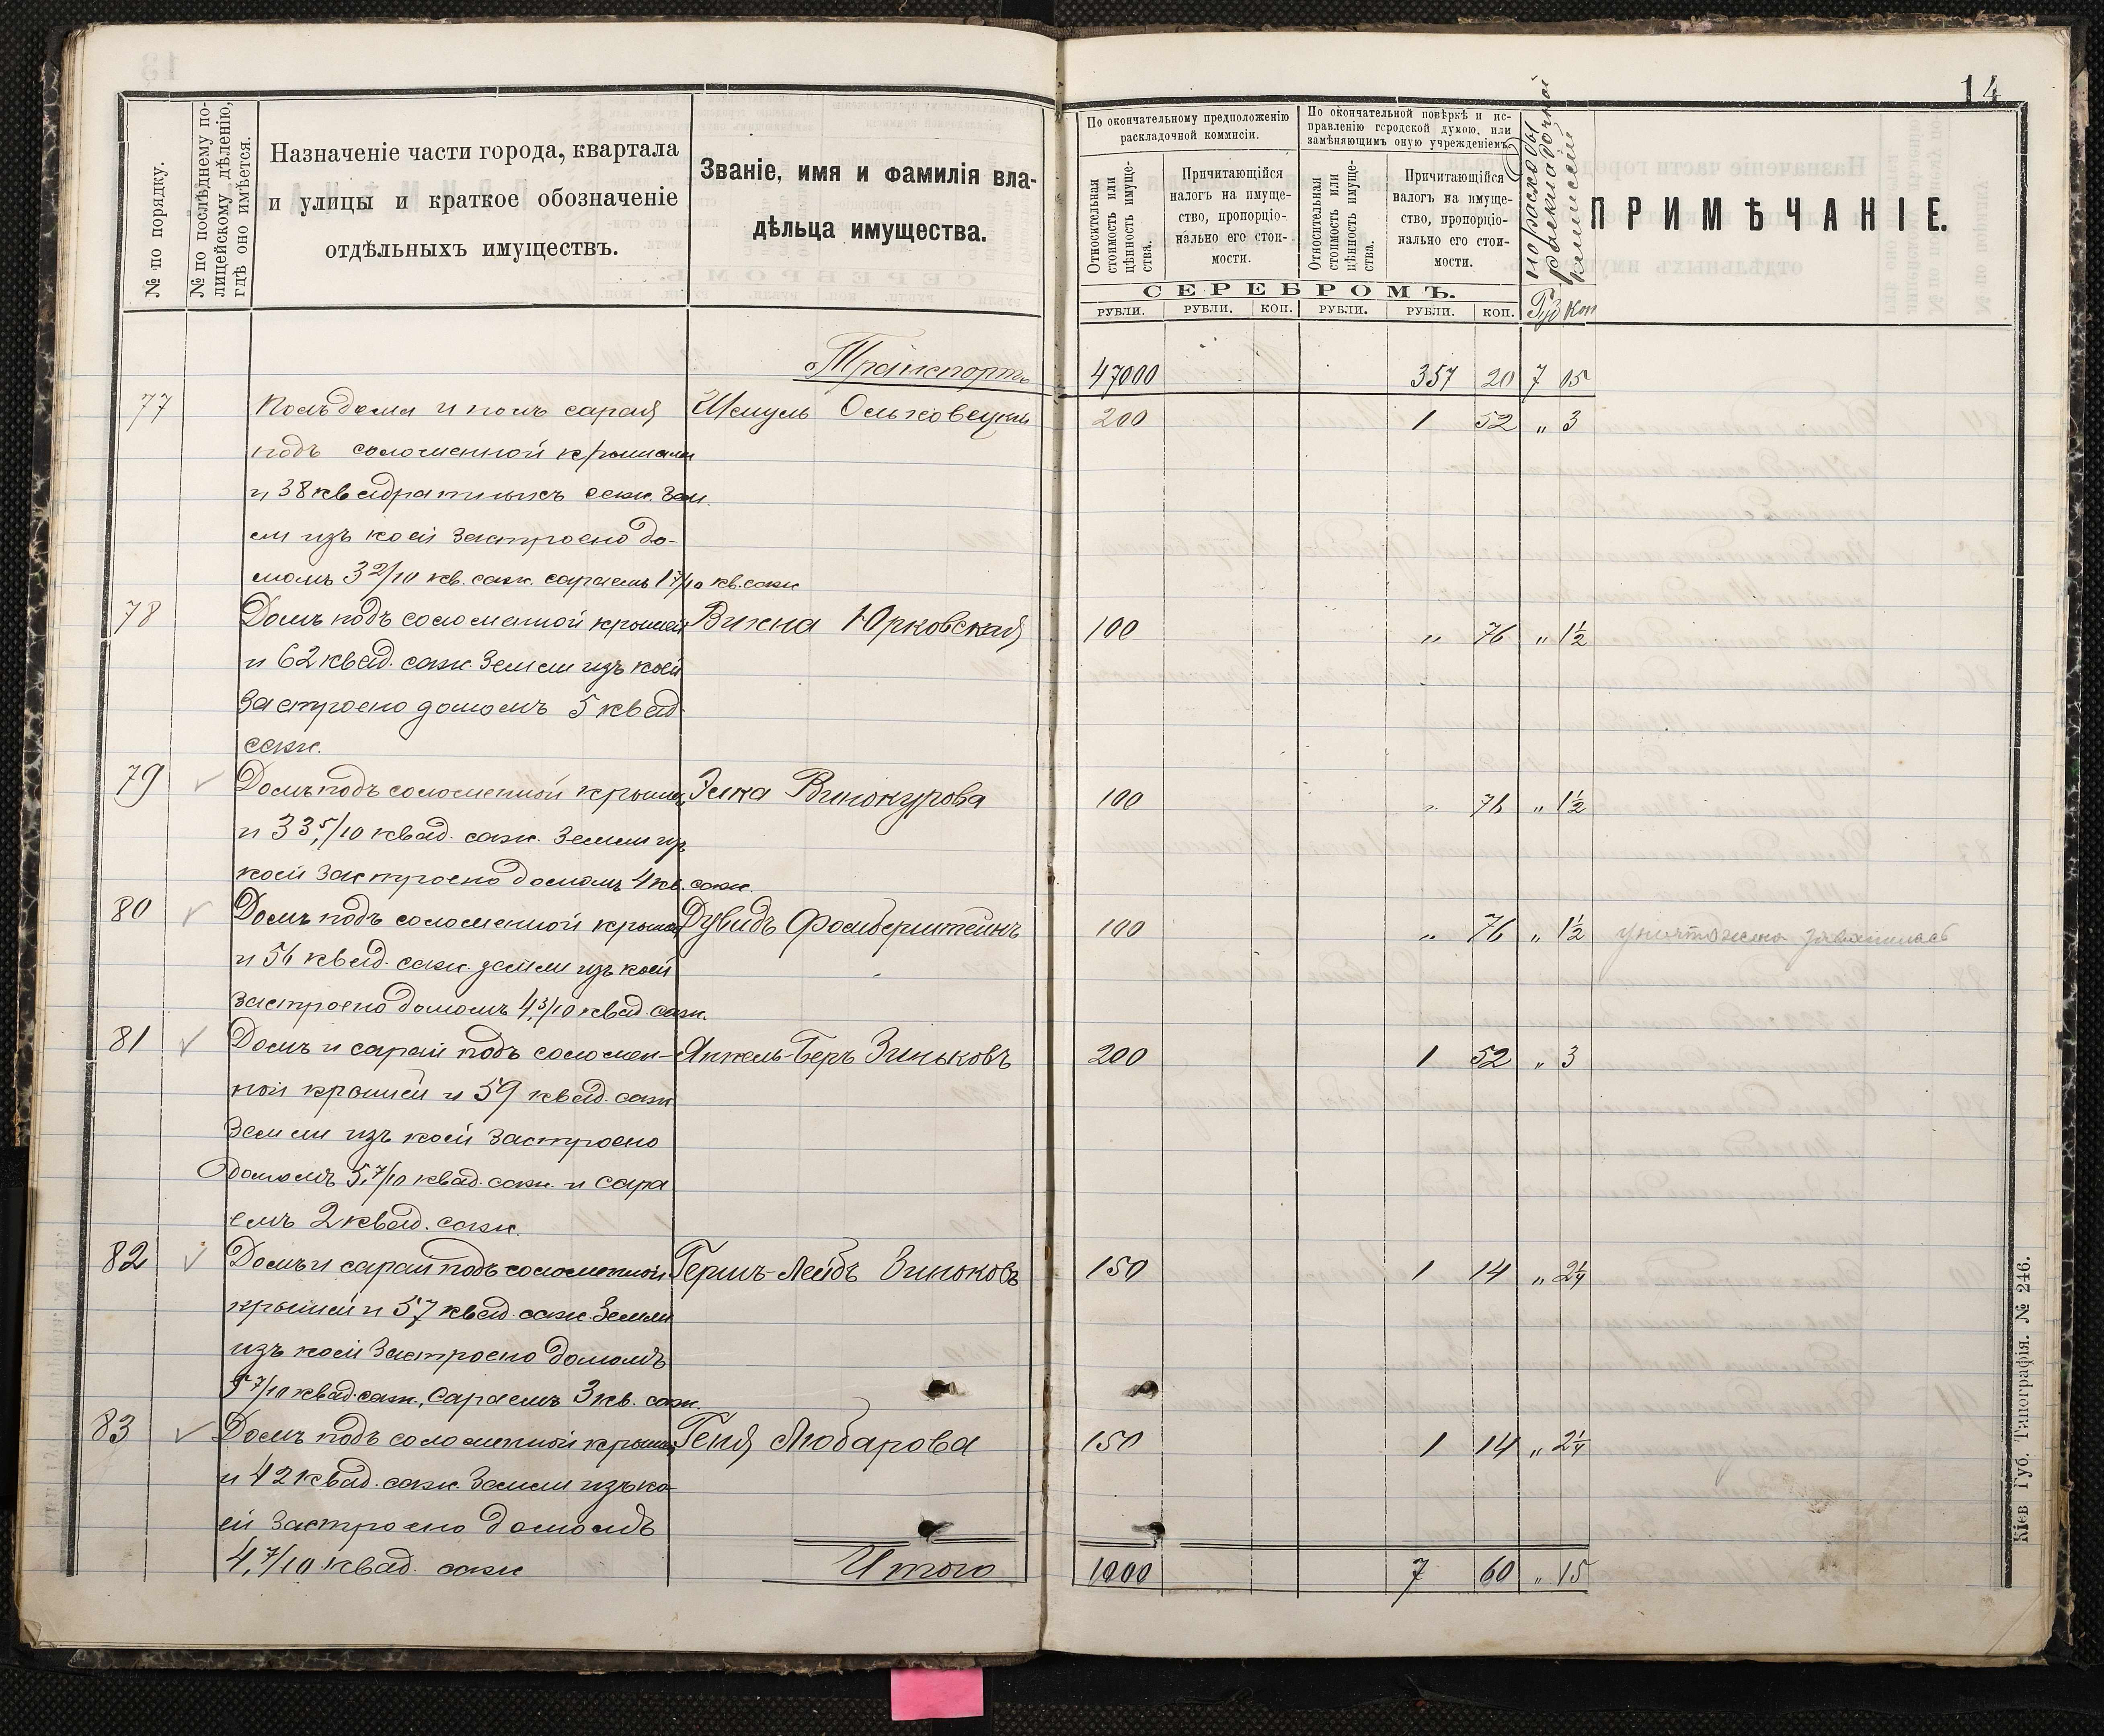 14
№ по порядку.
№ по послѣднему по-
лицейскому дѣленію,
гдѣ оно имѣется.
Назначеніе части города, квартала
и улицы и краткое обозначеніе
отдѣльныхъ имуществъ.
Званіе, имя и фамилія вла-
дѣльца имущества.
По окончательному предположенію
раскладочной коммисіи.
По окончательной повѣркѣ и ис-
правленію городской думою, или
замѣняющимъ оную учрежденіемъ.
Относительная
стоимость или
цѣнность имуще-
ства.
Причитающійся
налогъ на имуще-
ство, пропорціо-
нально его стои-
мости.
Относительная
стоимость или
цѣнность имуще-
ства.
Причитающійся
налогъ на имуще-
ство, пропорціо-
нально его стои-
мости.
на расходы
раскладочной
коммисіи
ПРИМѢЧАНІЕ.
СЕРЕБРОМЪ.
РУБЛИ. РУБЛИ. КОП. РУБЛИ. РУБЛИ. КОП. Руб Коп
Транспортъ 47000 357 20 7 05
77 Полъ дома и полъ сарая Шмуль Ольховецкій 200 1 52 " 3
подъ соломенной крышами
и 38 квадратныхъ саж. зем
ли изъ коей застроено до-
момъ 3 2/10 кв. саж. сараемъ 1 7/10 кв. саж
78 Домъ подъ соломенной крышей Вихна Юрковская 100 " 76 " 1½
и 62 квад. саж. земли изъ коей
застроено домомъ 5 квад
саж.
79 Домъ подъ соломенной крышей Элка Винокурова 100 " 76 " 1½
и 33,5/10 квад. саж. земли изъ
коей застроено домомъ 4 кв. саж.
80 Домъ подъ соломенной крышей Дувидъ Фомберштейнъ 100 " 76 " 1½
и 56 квад. саж. земли изъ коей
застроено домомъ 4,3/10 квад. саж.
81 Домъ и сарай подъ соломен- Янкель-Беръ Зиньковъ 200 1 52 " 3
ной крышей и 59 квад. саж
земли изъ коей застроено
домомъ 5,7/10 квад. саж. и сара
емъ 2 квад. саж.
82 Домъ и сарай подъ соломенной Гершъ-Лейбъ Зиньковъ 150 1 14 " 2¼
крышей и 57 квад. саж. земли
изъ коей застроено домомъ
5 7/10 квад. саж., сараемъ 3 кв. саж.
83 Домъ подъ соломенной крышей Геня Любарова 150 1 14 " 2¼
и 42 квад. саж. земли изъ ко
ей застроено домомъ
4,7/10 квад. саж
Итого 1000 7 60 " 15
Кіев Губ. Типографія. № 246.